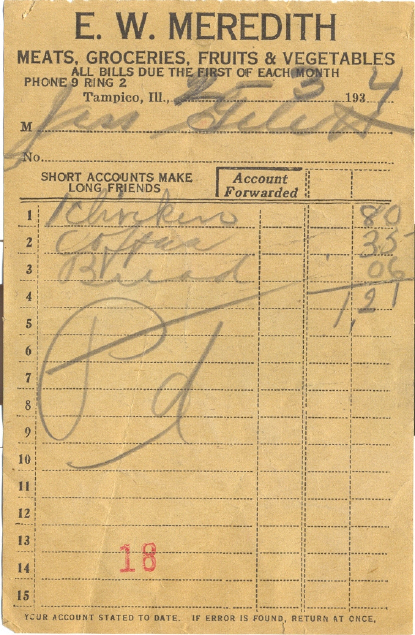 E. W. MEREDITH
MEATS, GROCERIES, FRUITS & VEGETABLES
ALL BILLS DUE THE FIRST OF EACH MONTH
PHONE 9 RING 2
Tampico, Ill., 2-3 1934
M Jess
No.
SHORT ACCOUNTS MAKE LONG FRIENDS
Account Forwarded
1 1 Chicken 80
2 Coffee 35
3 Bread 06
4 1,21
5
6
7 Pd
8
9
10
11
12
13
14 18
15
YOUR ACCOUNT STATED TO DATE. IF ERROR IS FOUND, RETURN AT ONCE.